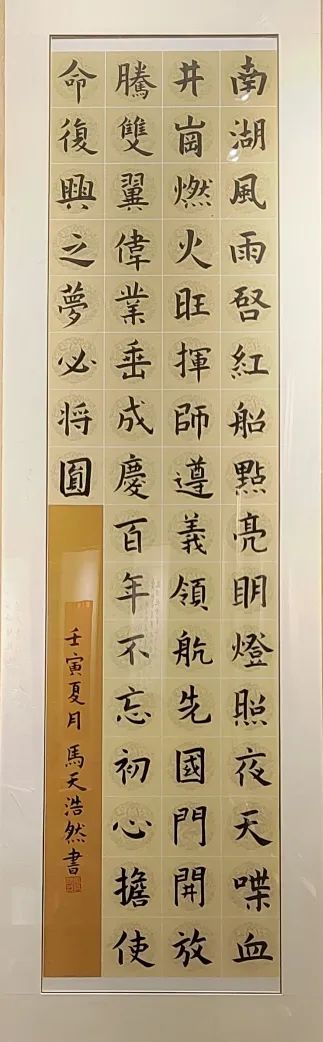 南湖風雨啓紅船點亮明燈照夜天喋血
井崗燃火旺揮師遵義領航先國門開放
騰雙翼偉業垂成慶百年不忘初心擔使
命復興之夢必将圓
壬寅夏月馬天浩然書